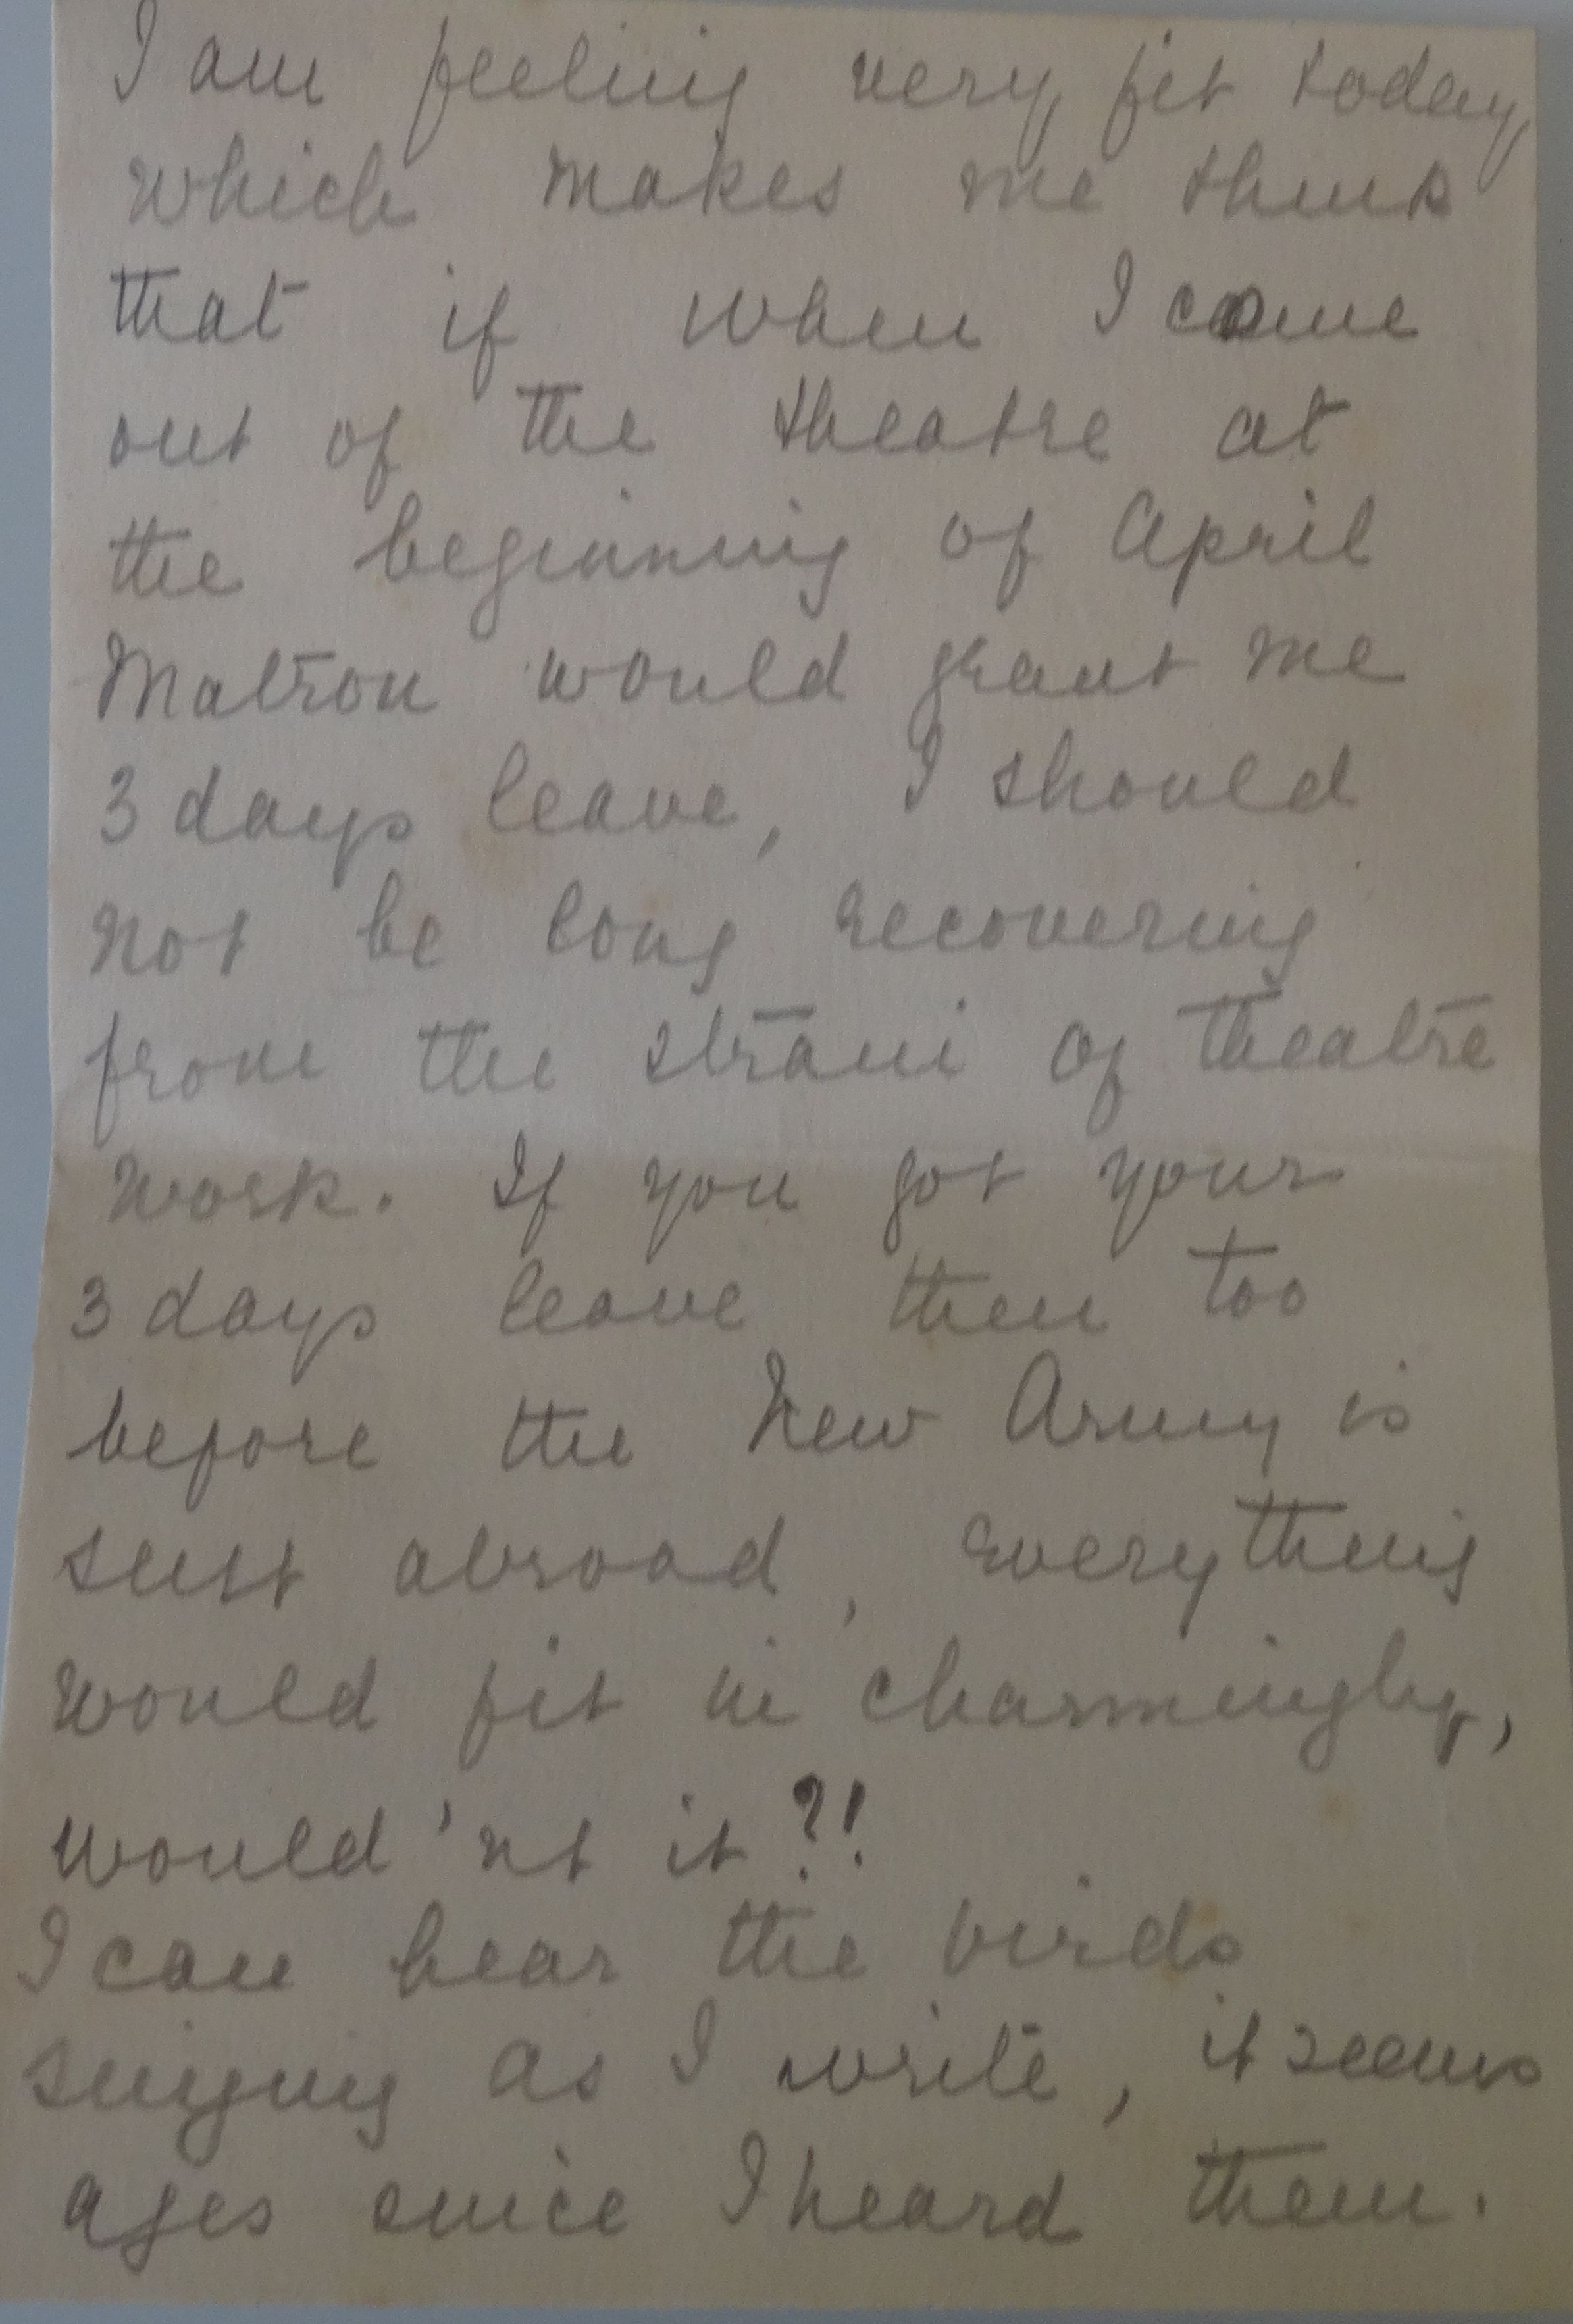 I am feeling very fit today,
which makes me think
that if when I come
out of the theatre at
the beginning of April
Matron would grant me
3 days leave, I should
not be long recovering
from the strain of theatre
work. If you got your
3 days leave then too
before the New Army is
sent abroad, everything
would fit in charmingly,
would'nt it?!
I can hear the birds
singing as I write, it seems
ages since I heard them.